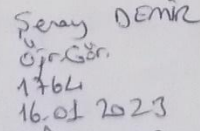 Şeray DEMİR
Öğr.Gör.
1764
16.01 2023